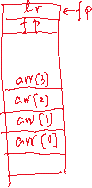 lr ← fp
fp
arr[3]
arr[2]
arr[1]
arr[0]